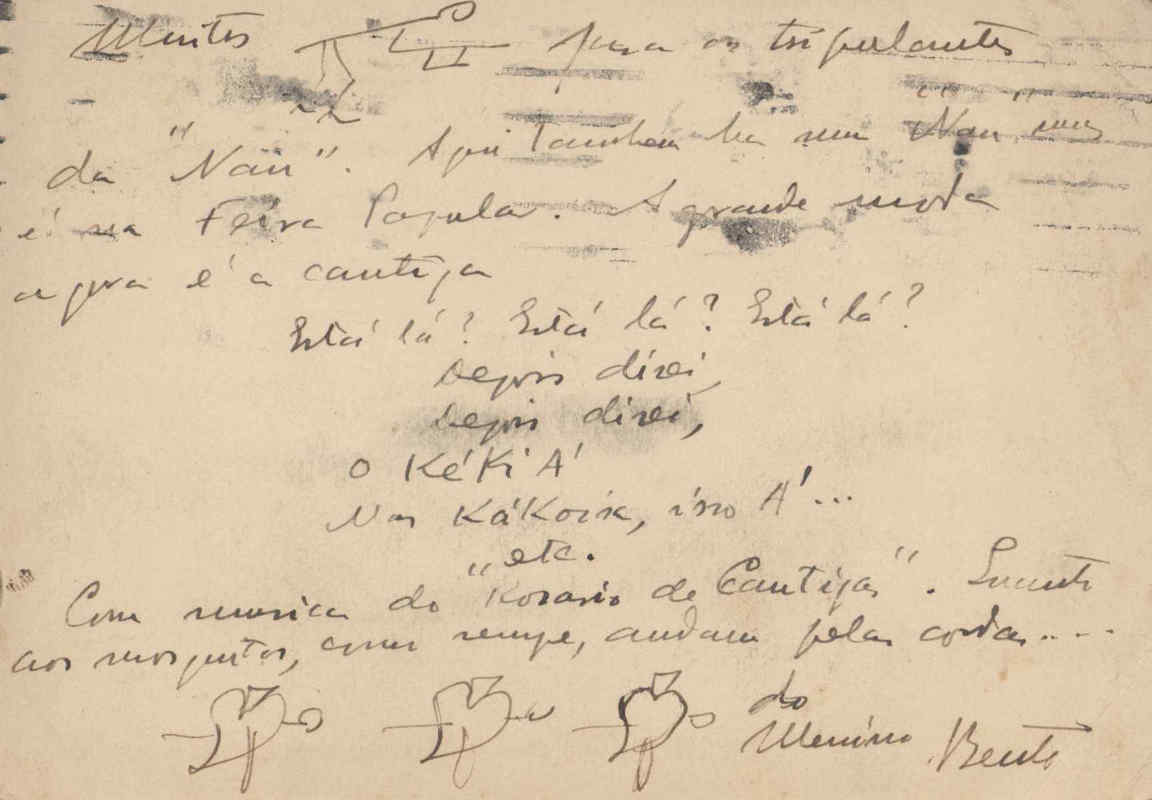 Muitos para os tripulantes
da "Nau". Aqui tambem há uma "Nau" mas
é na Feira Popular. A grande moda
agora é a cantiga
Está lá? Está lá? Está lá?
Depois direi,
Depois direi,
O KéKi A'
Nas KáKoisa, isso A'...
etc.
Com musica do "Rosario de Cantigas". Quanto
aos mosquitos, como sempre, andam pelas cordas....
do
Menino Bento